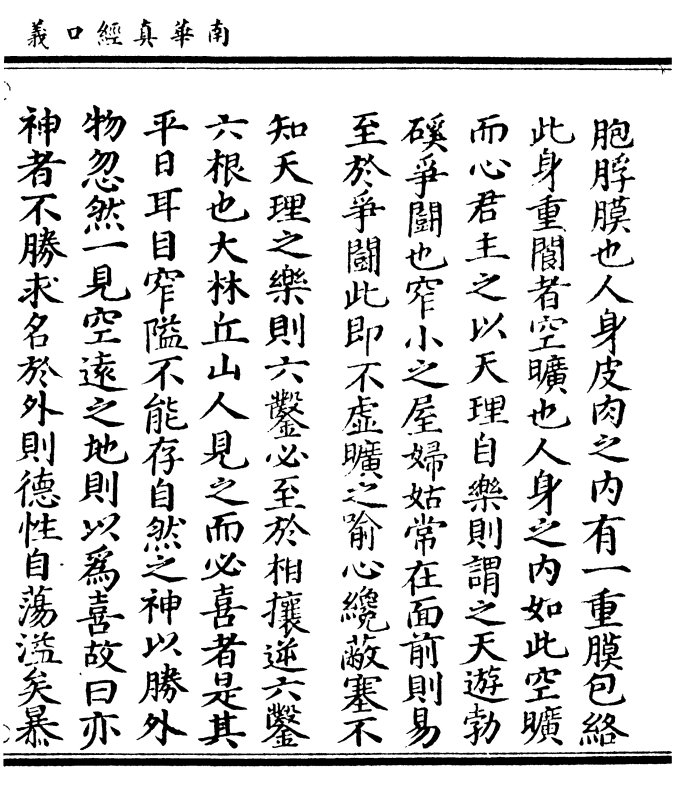 南華真經口義
胞脬膜也人身皮肉之内有一重膜包絡
此身重閬者空曠也人身之内如此空曠
而心君主之以天理自樂則謂之天遊勃
磎爭鬪也窄小之屋婦姑常在面前則易
至於爭鬪此即不虛曠之喻心纔蔽塞不
知天理之樂則六鑿必至於相攘逆六鑿
六根也大林丘山人見之而必喜者是其
平日耳目窄隘不能存自然之神以勝外
物忽然一見空遠之地則以爲喜故曰亦
神者不勝求名於外則德性自蕩溢矣暴